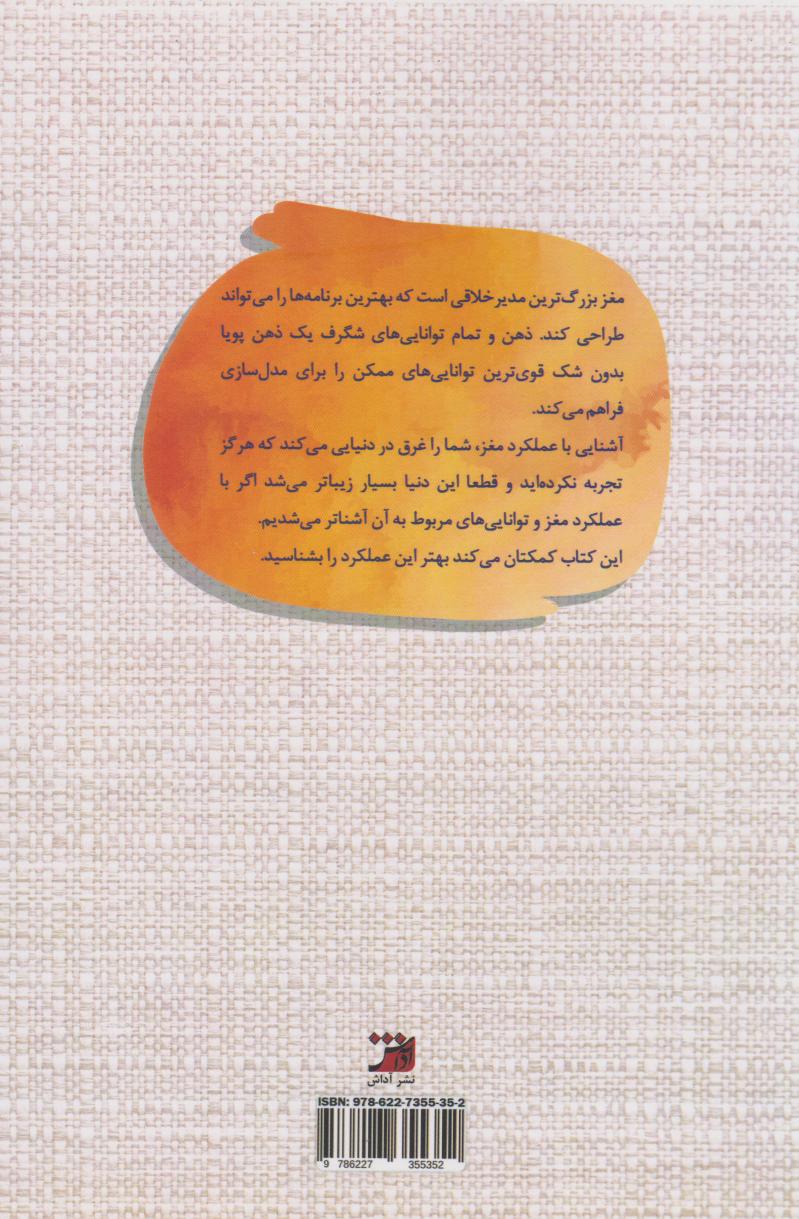 مغز بزرگ‌ترین مدیر خلاقی است که بهترین برنامه‌ها را می‌تواند
طراحی کند. ذهن و تمام توانایی‌های شگرف یک ذهن پویا
بدون شک قوی‌ترین توانایی‌های ممکن را برای مدل‌سازی
فراهم می‌کند.
آشنایی با عملکرد مغز، شما را غرق در دنیایی می‌کند که هرگز
تجربه نکرده‌اید و قطعا این دنیا بسیار زیباتر می‌شد اگر با
عملکرد مغز و توانایی‌های مربوط به آن آشناتر می‌شدیم.
این کتاب کمکتان می‌کند بهتر این عملکرد را بشناسید.
آداش
نشر آداش
ISBN: 978-622-7355-35-2
9 786227 355352